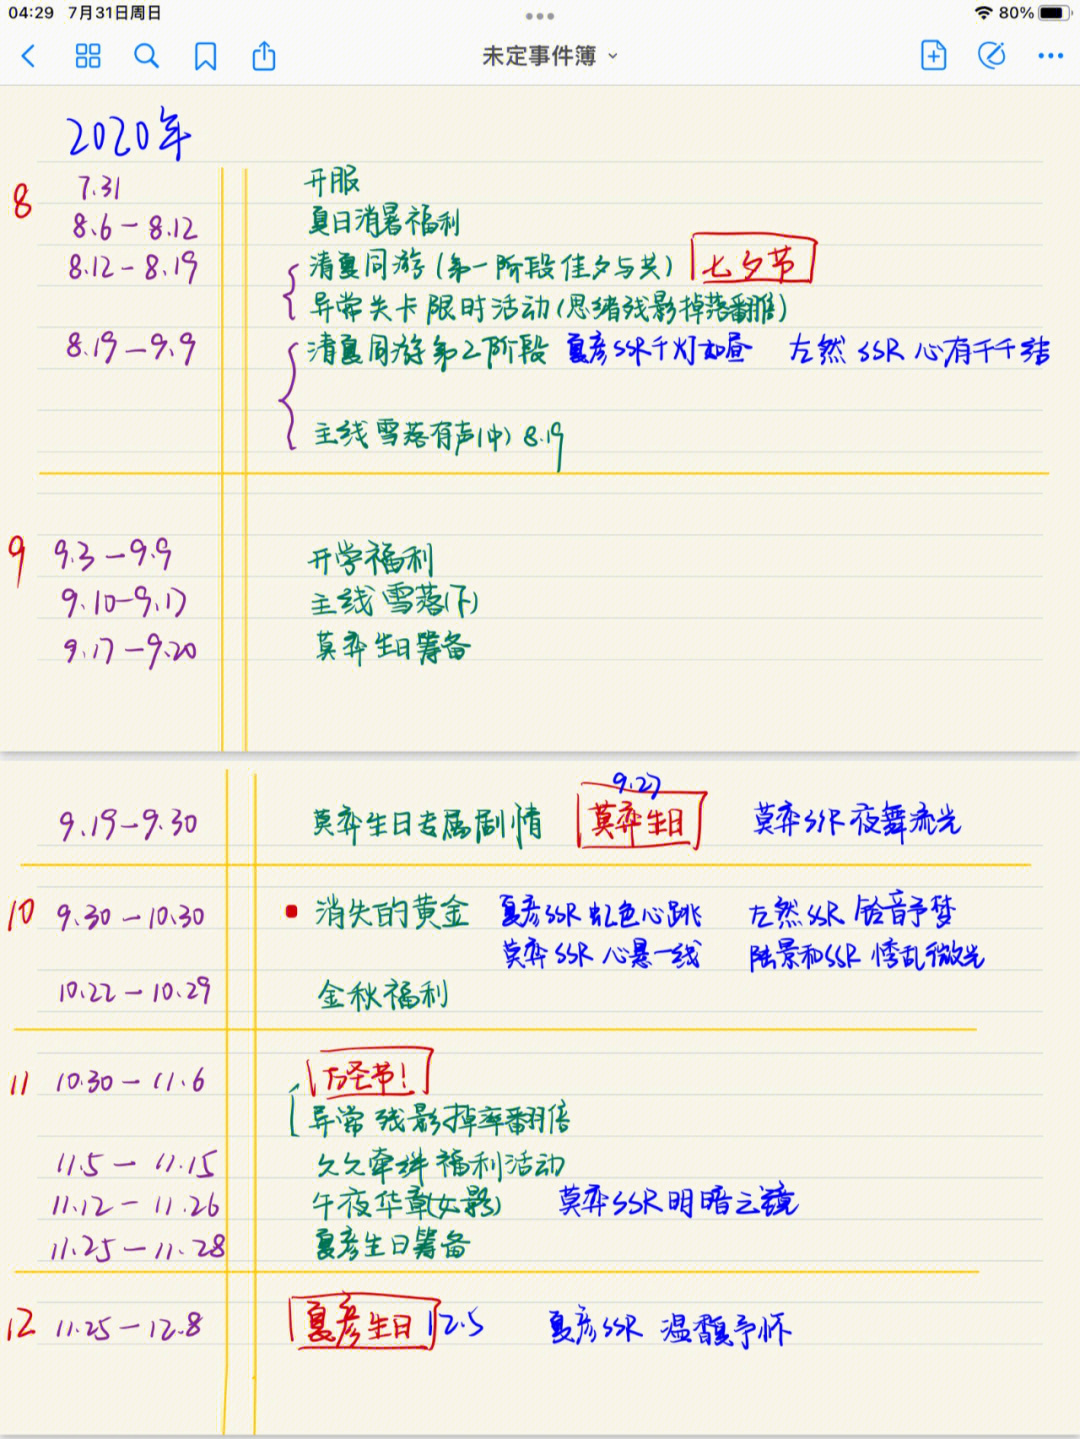 04:29 7月31日周日
80%
未定事件簿
2020年
8
7.31 开服
8.6-8.12 夏日消暑福利
8.12-8.19 清夏同游(第一阶段佳夕与共) 七夕节
异常关卡限时活动(思绪残影掉落翻倍)
8.19-9.9 清夏同游第2阶段 夏彦SSR千灯如昼 左然SSR心有千千结
主线雪落有声(中) 8.19
9 9.3-9.9 开学福利
9.10-9.17 主线雪落(下)
9.17-9.20 莫弈生日筹备
9.27
9.19-9.30 莫弈生日专属剧情 莫弈生日 莫弈SSR夜舞流光
10 9.30-10.30 消失的黄金 夏彦SSR虹色心跳 左然SSR铃音予梦
莫弈SSR心悬一线 陆景和SSR悸乱微光
10.22-10.29 金秋福利
11 10.30-11.6 万圣节!
异常残影掉率翻倍
11.5-11.15 久久牵绊福利活动
11.12-11.26 午夜华章(女影) 莫弈SSR明暗之镜
11.25-11.28 夏彦生日筹备
12 11.25-12.8 夏彦生日 12.5 夏彦SSR温馥予怀